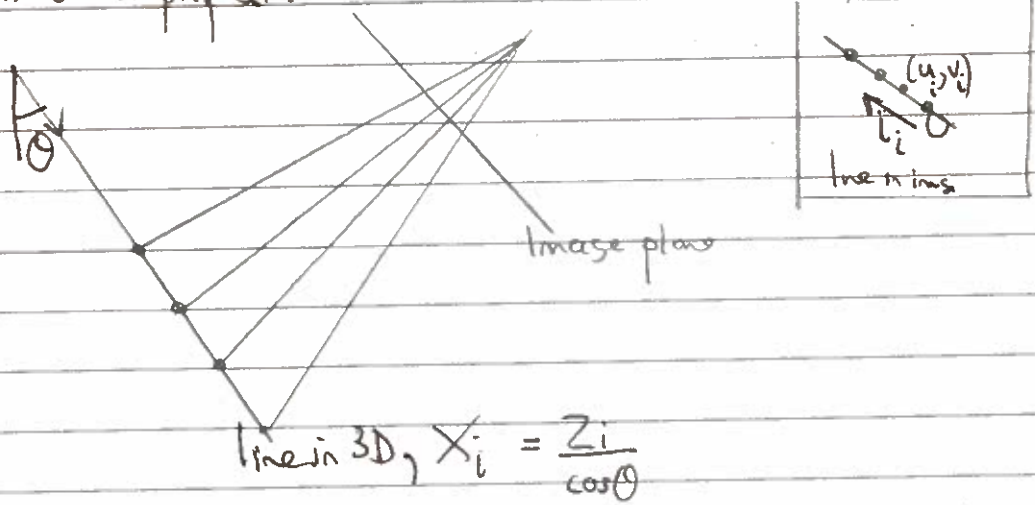 (uᵢ,vᵢ)
θ
lᵢ
line in image
Image plane
line in 3D, Xᵢ = Zᵢ / cosθ